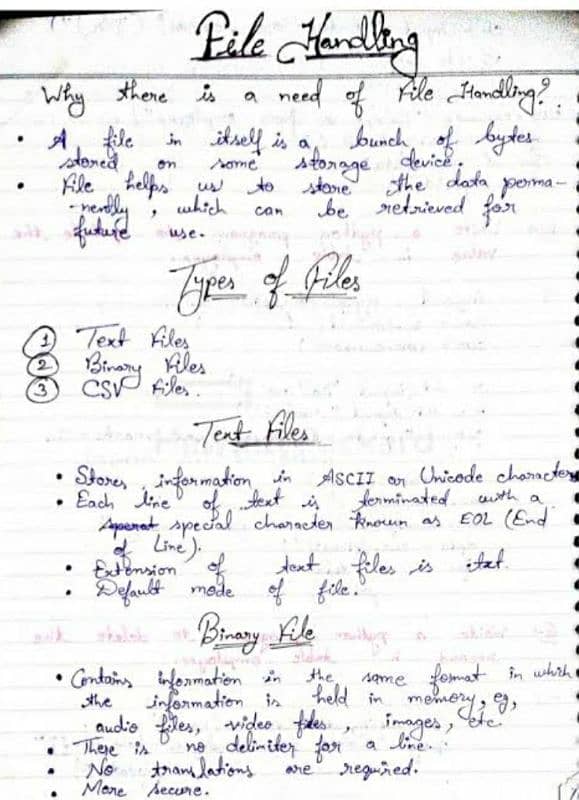 File Handling
Why there is a need of File Handling?
• A file in itself is a bunch of bytes
stored on some storage device.
• File helps us to store the data perma-
-nently, which can be retrieved for
future use.
Types of Files
1 Text Files
2 Binary Files
3 CSV Files.
Text Files
• Stores information in ASCII or Unicode characters
• Each line of text is terminated with a
special character known as EOL (End
of Line).
• Extension of text files is .txt.
• Default mode of file.
Binary File
• Contains information in the same format in which
the information is held in memory, eg,
audio files, video files, images, etc.
• There is no delimiter for a line.
• No translations are required.
• More secure.